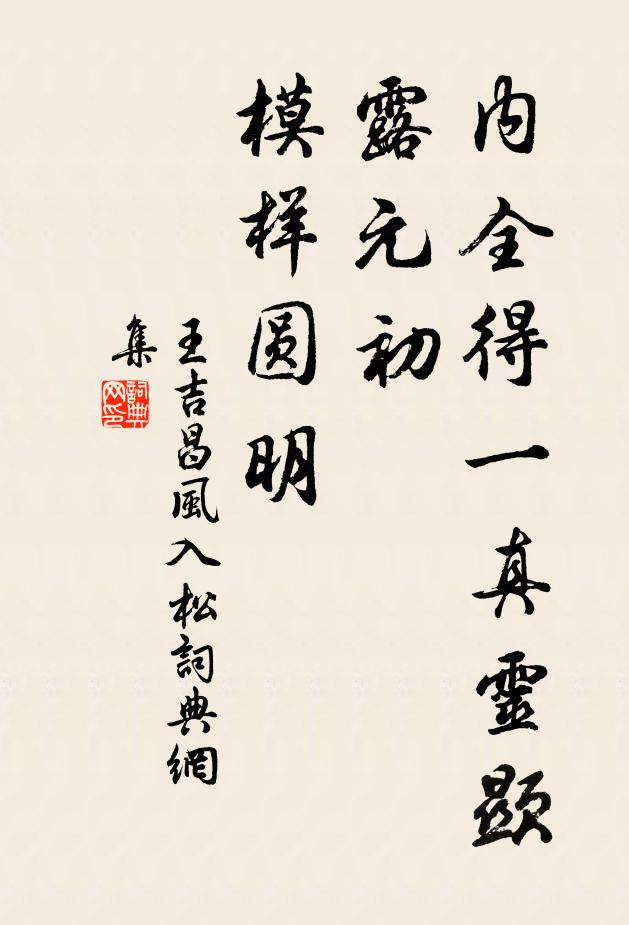 内全得一真靈顯
露元初
模样圆明
王吉昌風入松詞典網
集
詞典
网印